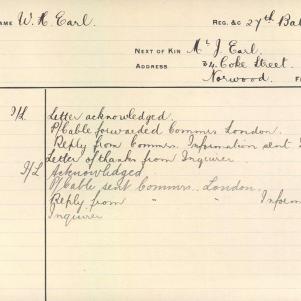 NAME W. H. Earl. REG. &C 27th Bat
NEXT OF KIN Mr J. Earl.
ADDRESS 24 Coke Street
Norwood.
I/L Letter acknowledged.
P/Cable forwarded Commrs London.
Reply from Commrs. Information sent
Letter of thanks from Inquirer
I/L Acknowledged
P/Cable sent Commrs. London.
Reply from " " Inform
Inquirer